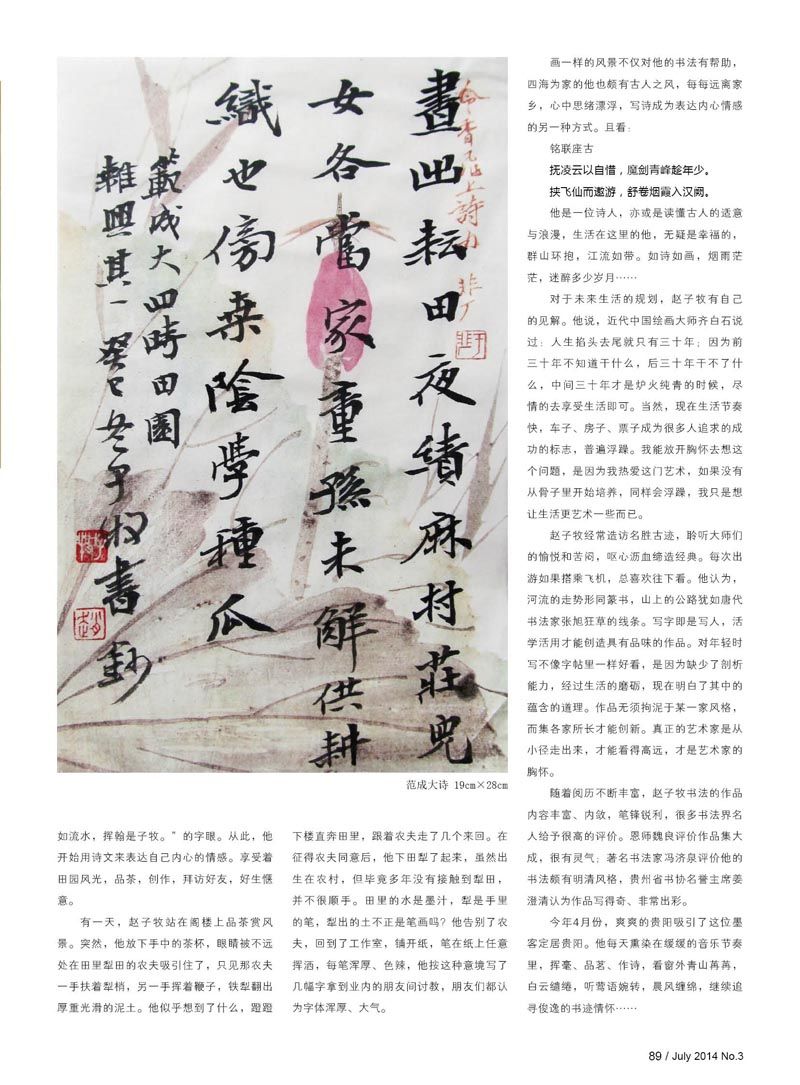 冷香飞上詩句 非丁
晝出耘田夜績麻村莊兒
女各當家童孫未解供耕
織也傍桑陰學種瓜
範成大四時田園
雜興其一 癸巳冬子牧書鈔
范成大诗 19cm×28cm
如流水，挥翰是子牧。”的字眼。从此，他
开始用诗文来表达自己内心的情感。享受着
田园风光，品茶，创作，拜访好友，好生惬
意。
有一天，赵子牧站在阁楼上品茶赏风
景。突然，他放下手中的茶杯，眼睛被不远
处在田里犁田的农夫吸引住了，只见那农夫
一手扶着犁梢，另一手挥着鞭子，铁犁翻出
厚重光滑的泥土。他似乎想到了什么，蹬蹬
下楼直奔田里，跟着农夫走了几个来回。在
征得农夫同意后，他下田犁了起来，虽然出
生在农村，但毕竟多年没有接触到犁田，
并不很顺手。田里的水是墨汁，犁是手里
的笔，犁出的土不正是笔画吗？他告别了农
夫，回到了工作室，铺开纸，笔在纸上任意
挥洒，每笔浑厚、色辣，他按这种意境写了
几幅字拿到业内的朋友间讨教，朋友们都认
为字体浑厚、大气。
画一样的风景不仅对他的书法有帮助，
四海为家的他也颇有古人之风，每每远离家
乡，心中思绪漂浮，写诗成为表达内心情感
的另一种方式。且看：
铭联座古
抚凌云以自惜，魔剑青峰趁年少。
挟飞仙而遨游，舒卷烟霞入汉阙。
他是一位诗人，亦或是读懂古人的适意
与浪漫，生活在这里的他，无疑是幸福的，
群山环抱，江流如带。如诗如画，烟雨茫
茫，迷醉多少岁月……
对于未来生活的规划，赵子牧有自己
的见解。他说，近代中国绘画大师齐白石说
过：人生掐头去尾就只有三十年；因为前
三十年不知道干什么，后三十年干不了什
么，中间三十年才是炉火纯青的时候，尽
情的去享受生活即可。当然，现在生活节奏
快，车子、房子、票子成为很多人追求的成
功的标志，普遍浮躁。我能放开胸怀去想这
个问题，是因为我热爱这门艺术，如果没有
从骨子里开始培养，同样会浮躁，我只是想
让生活更艺术一些而已。
赵子牧经常造访名胜古迹，聆听大师们
的愉悦和苦闷，呕心沥血缔造经典。每次出
游如果搭乘飞机，总喜欢往下看。他认为，
河流的走势形同篆书，山上的公路犹如唐代
书法家张旭狂草的线条。写字即是写人，活
学活用才能创造具有品味的作品。对年轻时
写不像字帖里一样好看，是因为缺少了剖析
能力，经过生活的磨砺，现在明白了其中的
蕴含的道理。作品无须拘泥于某一家风格，
而集各家所长才能创新。真正的艺术家是从
小径走出来，才能看得高远，才是艺术家的
胸怀。
随着阅历不断丰富，赵子牧书法的作品
内容丰富、内敛，笔锋锐利，很多书法界名
人给予很高的评价。恩师魏良评价作品集大
成，很有灵气；著名书法家冯济泉评价他的
书法颇有明清风格，贵州省书协名誉主席姜
澄清认为作品写得奇、非常出彩。
今年4月份，爽爽的贵阳吸引了这位墨
客定居贵阳。他每天熏染在缓缓的音乐节奏
里，挥毫、品茗、作诗，看窗外青山苒苒，
白云缱绻，听莺语婉转，晨风缠绵，继续追
寻俊逸的书迹情怀……
89 / July 2014 No.3